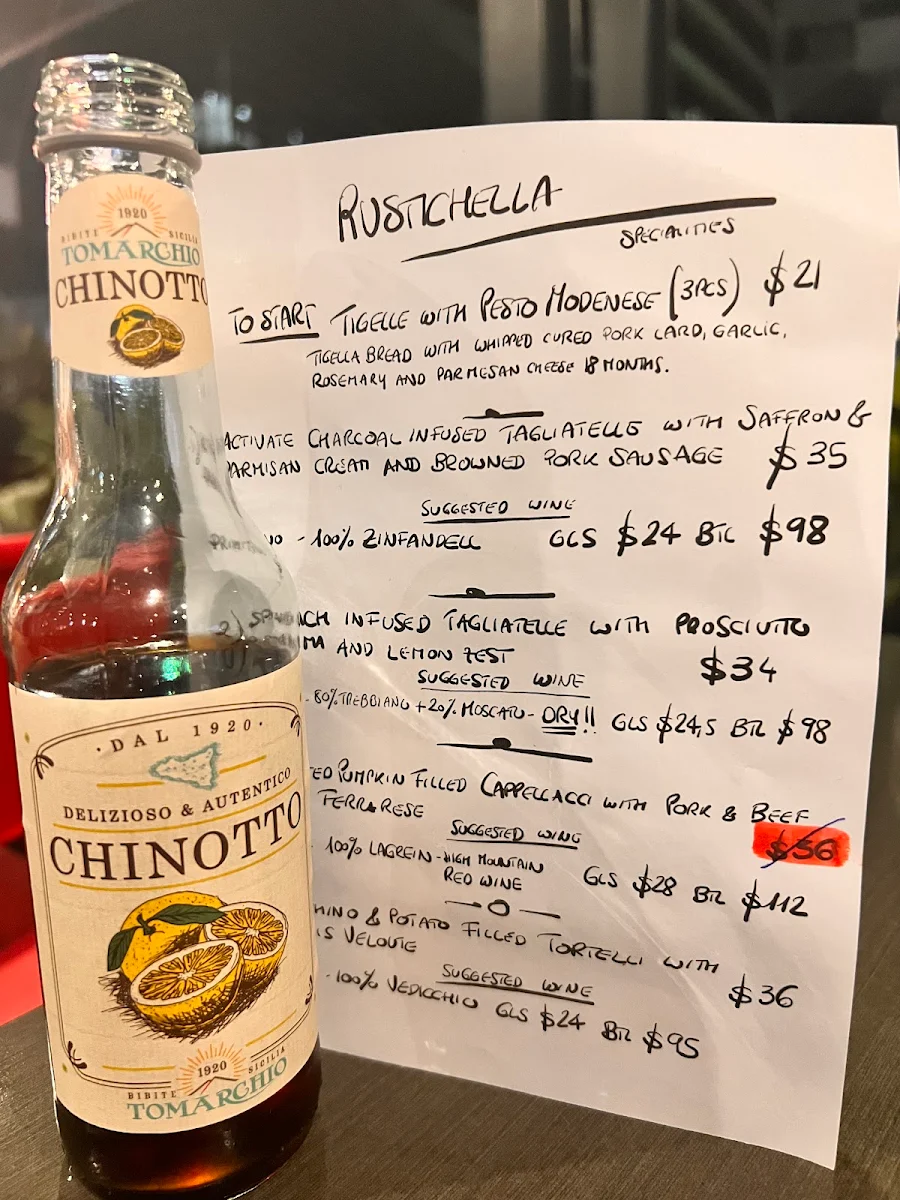 1920
BIBITE SICILIA
TOMARCHIO
CHINOTTO
·DAL 1920·
DELIZIOSO & AUTENTICO
CHINOTTO
1920
BIBITE SICILIA
TOMARCHIO
RUSTICHELLA
SPECIALITIES
TO START TIGELLE WITH PESTO MODENESE (3PCS) $21
TIGELLA BREAD WITH WHIPPED CURED PORK LARD, GARLIC,
ROSEMARY AND PARMESAN CHEESE 18 MONTHS.
ACTIVATE CHARCOAL INFUSED TAGLIATELLE WITH SAFFRON &
PARMISAN CREAM AND BROWNED PORK SAUSAGE $35
SUGGESTED WINE
- 100% ZINFANDELL GLS $24 BTL $98
2) SPINACH INFUSED TAGLIATELLE WITH PROSCIUTTO
AND LEMON ZEST $34
SUGGESTED WINE
- 80% TREBBIANO + 20% MOSCATO - DRY!! GLS $24,5 BTL $98
PUMPKIN FILLED CAPPELLACCI WITH PORK & BEEF
FERRARESE $36
SUGGESTED WINE
100% LAGREIN - HIGH MOUNTAIN
RED WINE GLS $28 BTL $112
& POTATO FILLED TORTELLI WITH
VELOUTE $36
SUGGESTED WINE
- 100% VEDICCHIO GLS $24 BTL $95